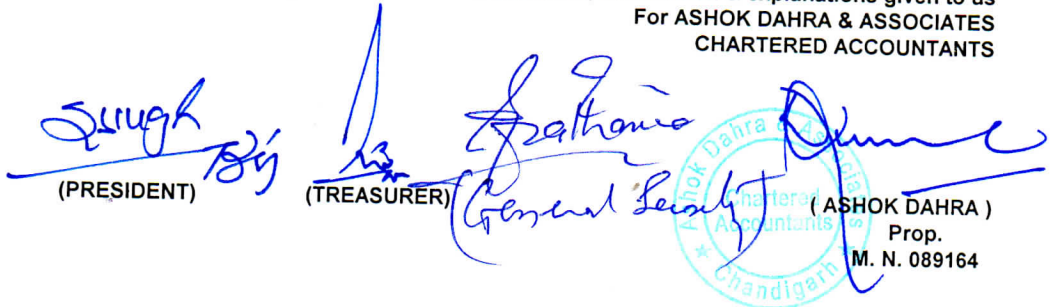 explanations given to us
For ASHOK DAHRA & ASSOCIATES
CHARTERED ACCOUNTANTS
Singh
(PRESIDENT)
(TREASURER)
(General Secretary)
Ashok Dahra & Associates
Chartered
Accountants
Chandigarh
( ASHOK DAHRA )
Prop.
M. N. 089164